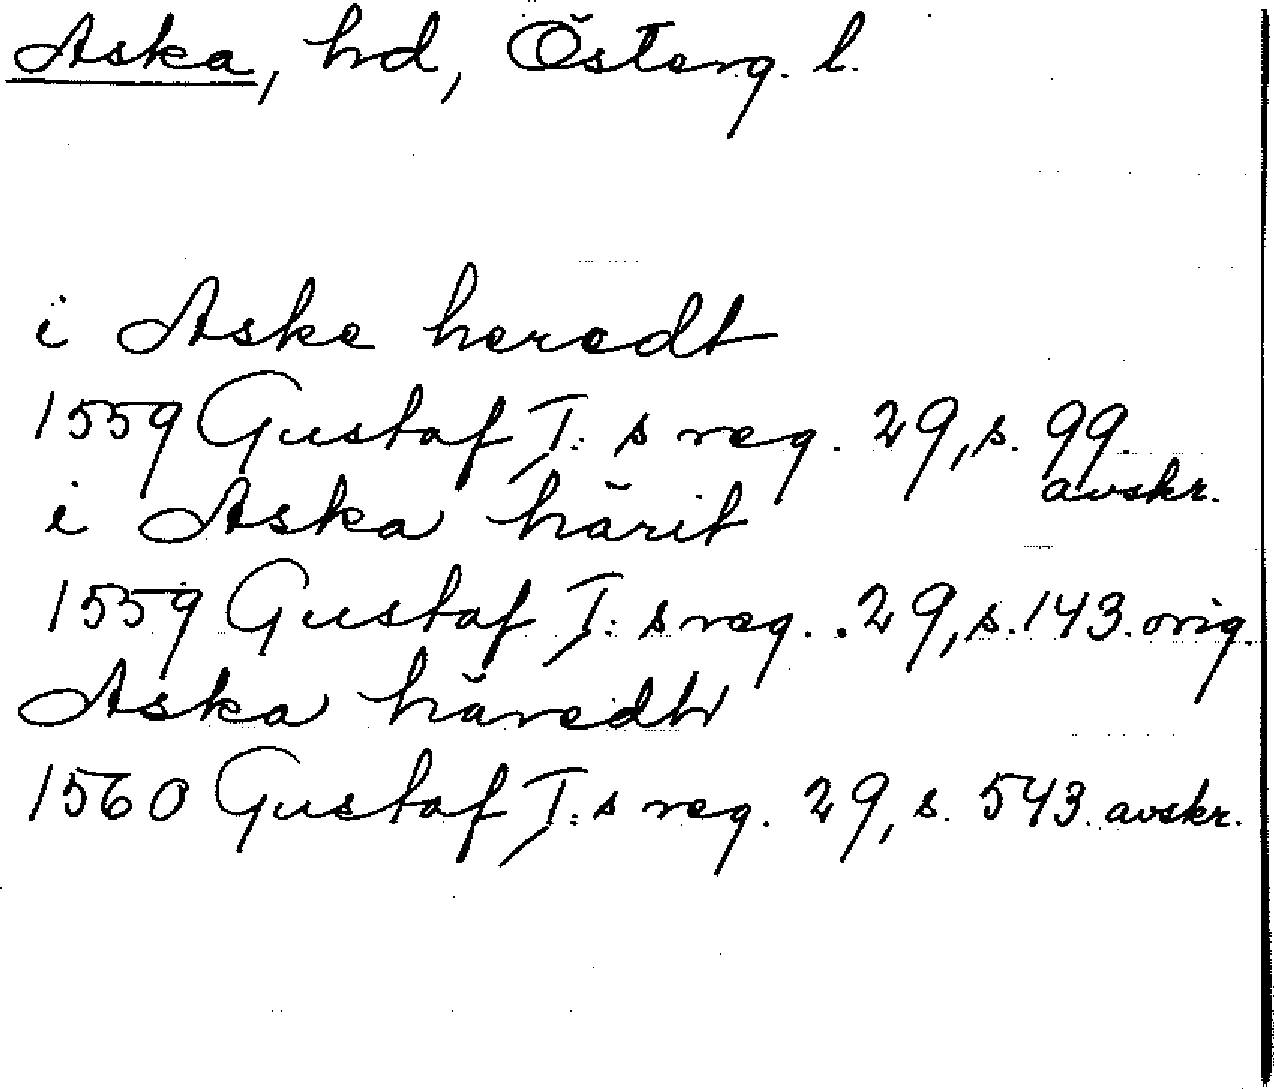 Aska, hd, Österg. l.
i Aske heredt
1559 Gustaf I:s reg. 29, s. 99.
avskr.
i Aska härit
1559 Gustaf I:s reg. 29, s. 143. orig.
Aska häredtt
1560 Gustaf I:s reg. 29, s. 543. avskr.